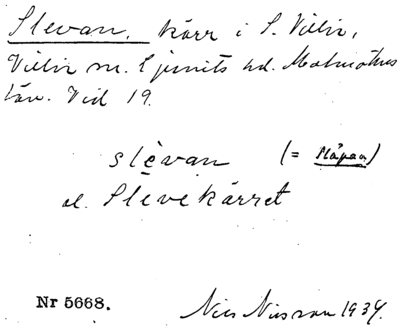 Slevan, kärr i S. Villie,
Villie sn. Ljunits hd. Malmöhus
län. Vid 19.
slèvan (= slåpan)
el. Slevekärret
Nr 5668. Nils Nilsson 1934.